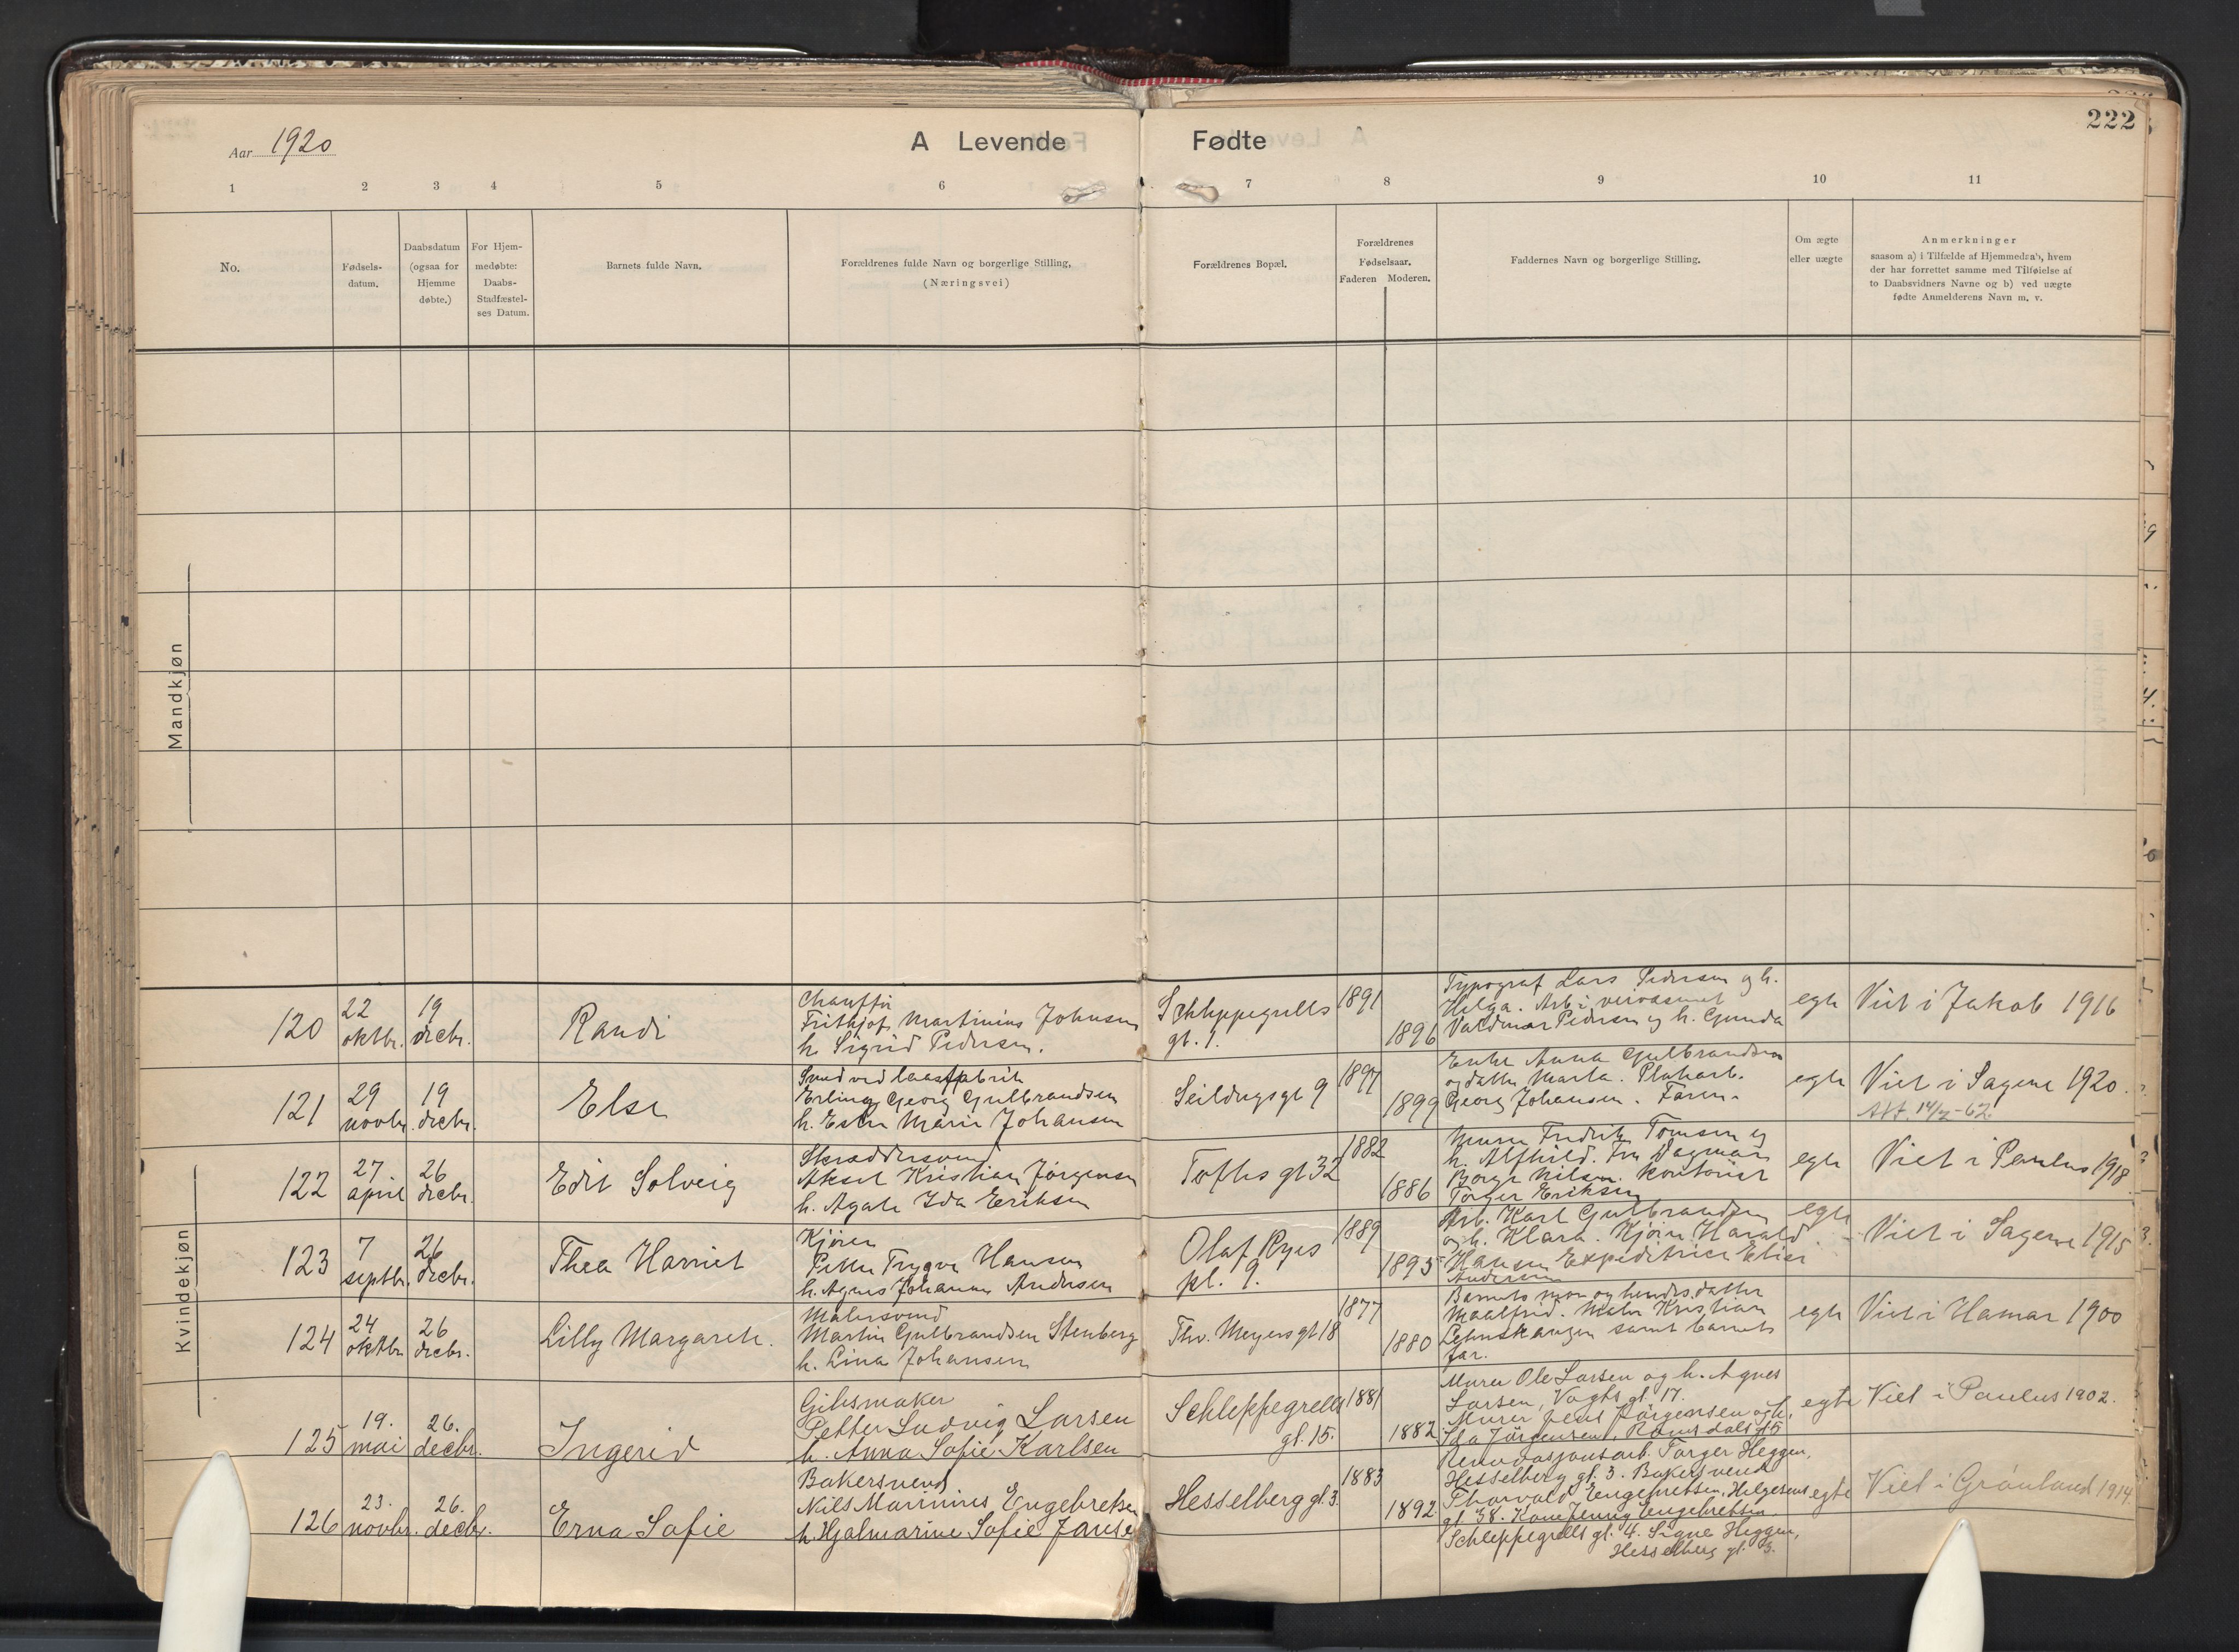 222
Aar 1920
A Levende Fødte
1 2 3 4 5 6 7 8 9 10 11
No.
Fødsels-
datum.
Daabsdatum
(ogsaa for
Hjemme
døbte.)
For Hjem-
medøbte:
Daabs-
Stadfæstel-
ses Datum.
Barnets fulde Navn.
Forældrenes fulde Navn og borgerlige Stilling,
(Næringsvei)
Forældrenes Bopæl.
Forældrenes
Fødselsaar.
Faderen Moderen.
Faddernes Navn og borgerlige Stilling.
Om ægte
eller uægte
Anmerkninger
saasom a) i Tilfælde af Hjemmedaab, hvem
der har forrettet samme med Tilføielse af
to Daabsvidners Navne og b) ved uægte
fødte Anmelderens Navn m. v.
Mandkjøn
Kvindekjøn
120
22
oktbr.
19
decbr.
Randi
Chauffør
Frithjof Martinius Johnsen
h. Sigrid Pedersen.
Schleppegrells
gt. 1.
1891
1896
Typograf Lars Pedersen og h.
Helga. Arb. i
Valdemar Pedersen og h. Gunda
egte
Viet i Jakob 1916
121
29
novbr.
19
decbr.
Else
Svend ved laasfabrik
Erling Georg Gulbrandsen
h. Ester Marie Johansen
Seildugsgt 9
1897
1899
Enke Anna Gulbrandsen
og datter Marta. Platarb.
Georg Johansen. Faren.
egte
Viet i Sagene 1920.
Att. 14/2-62
122
27
april
26
decbr.
Edit Solveig
Skræddersvend
Aksel Kristian Jørgensen
h. Agate Ida Eriksen
Toftes gt 32
1882
1886
Murer Fredrik Tomsen og
h. Alfhild. Fru Dagmar
Borge Nilsen. Kontorist
Torger Eriksen
egte
Viet i Paulus 1918.
123
7
septbr.
26
decbr.
Thea Harriet
Kjører
Petter Trygve Hansen
h. Agnes Johanne Andersen
Olaf Ryes
pl. 9.
1889
1895
Arb. Karl Gulbrandsen
og h. Klara. Kjører Harald
Hansen Expeditrice Elise
Andersen
egte
Viet i Sagene 1915
124
24
oktbr.
26
decbr.
Lilly Margarete.
Malersvend
Martin Gulbrandsen Stenberg
h. Lina Johansen
Thv. Meyers gt 18
1877
1880
Barnets mor og hendes datter
Maalfrid. Maler Kristian
samt barnets
far.
egte
Viet i Hamar 1900
125
19.
mai
26.
decbr.
Ingerid
Gibsmaker
Petter Ludvig Larsen
h. Anna Sofie Karlsen
Schleppegrells
gt. 15.
1881
1882
Murer Ole Larsen og h. Agnes
Larsen, Vogts gt. 17.
Murer Jens Jørgensen og h.
Ida Jørgensen, Romsdals gt 5
egte
Viet i Paulus 1902.
126
23.
novbr.
26.
decbr.
Erna Sofie
Bakersvend
Nils Marinius Engebretsen
h. Hjalmarine Sofie Janse
Hesselberg gt. 3.
1883
1892
Renovasjonsarb. Torger Heggen,
Hesselberg gt. 3. Bakersvend
Thorvald Engebretsen, Helgesens
gt 38. Kone Jenny Engebretsen,
Schleppegrells gt. 4. Signe Heggen,
Hesselberg gt. 3.
egte
Viet i Grønland 1914.